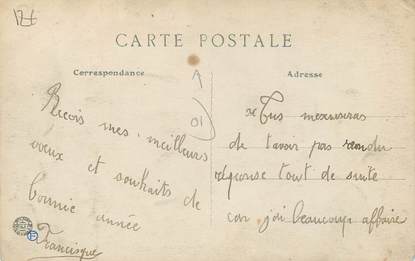 CARTE POSTALE
Correspondance
Adresse
Recois mes meilleurs
voeux et souhaits de
bonnie année
Francisque
Tus mexcuseras
de tavoir pas rendu
reponse tout de suite
car jai beaucoup affaire
A
01